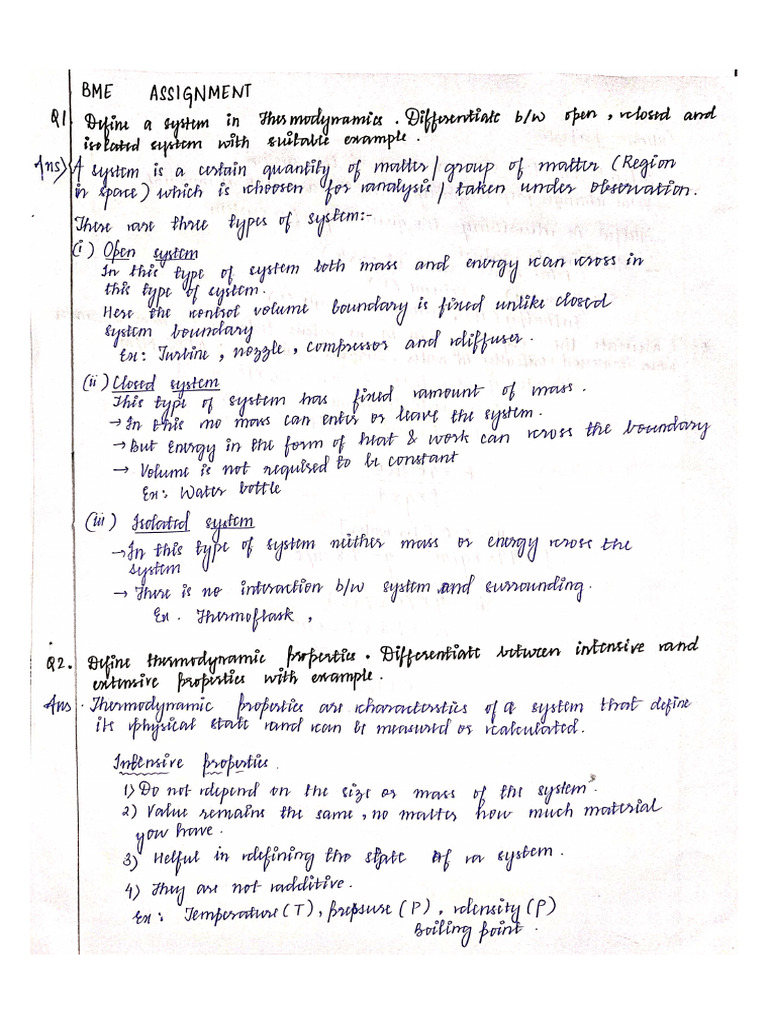 BME ASSIGNMENT
Q1. Define a system in Thermodynamics. Differentiate b/w open, closed and
isolated system with suitable example.
Ans) A system is a certain quantity of matter/group of matter (Region
in space) which is choosen for analysis/taken under observation.
There are three types of system:-
(i) Open system
In this type of system both mass and energy can cross in
this type of system.
Here the control volume boundary is fixed unlike closed
system boundary
Ex: Turbine, nozzle, compressor and diffuser.
(ii) Closed system
This type of system has fixed amount of mass.
→ In this no mass can enter or leave the system.
→ But Energy in the form of heat & work can cross the boundary
→ Volume is not required to be constant
Ex: Water bottle
(iii) Isolated system
→ In this type of system neither mass or energy cross the
system
→ There is no interaction b/w system and surrounding.
Ex. Thermoflask,
Q2. Define thermodynamic properties. Differentiate between intensive and
extensive properties with example.
Ans. Thermodynamic properties are characterstics of a system that define
its physical state and can be measured or calculated.
Intensive properties.
1) Do not depend on the size or mass of the system.
2) Value remains the same, no matter how much material
you have.
3) Helful in defining the state of a system.
4) They are not additive.
Ex: Temperature (T), pressure (P), density (ρ)
Boiling point.